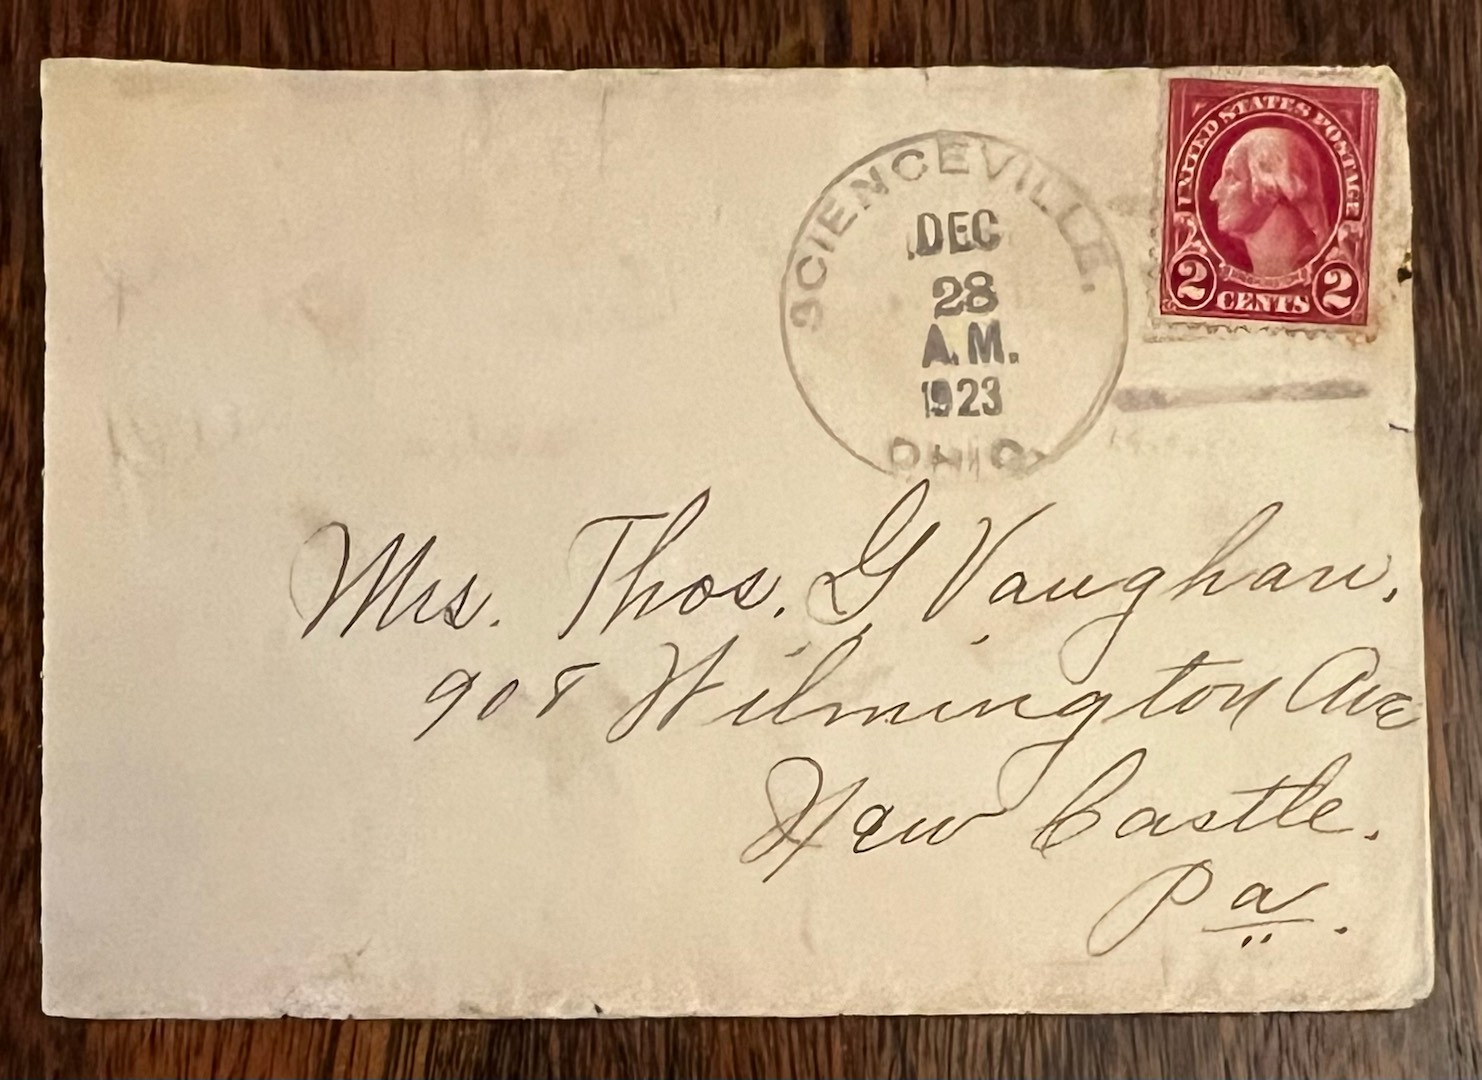 SCIENCEVILLE.
DEC
28
A.M.
1923
OHIO
UNITED STATES POSTAGE
2 CENTS 2
Mrs. Thos. G Vaughan,
908 Wilmington Ave
New Castle.
Pa.